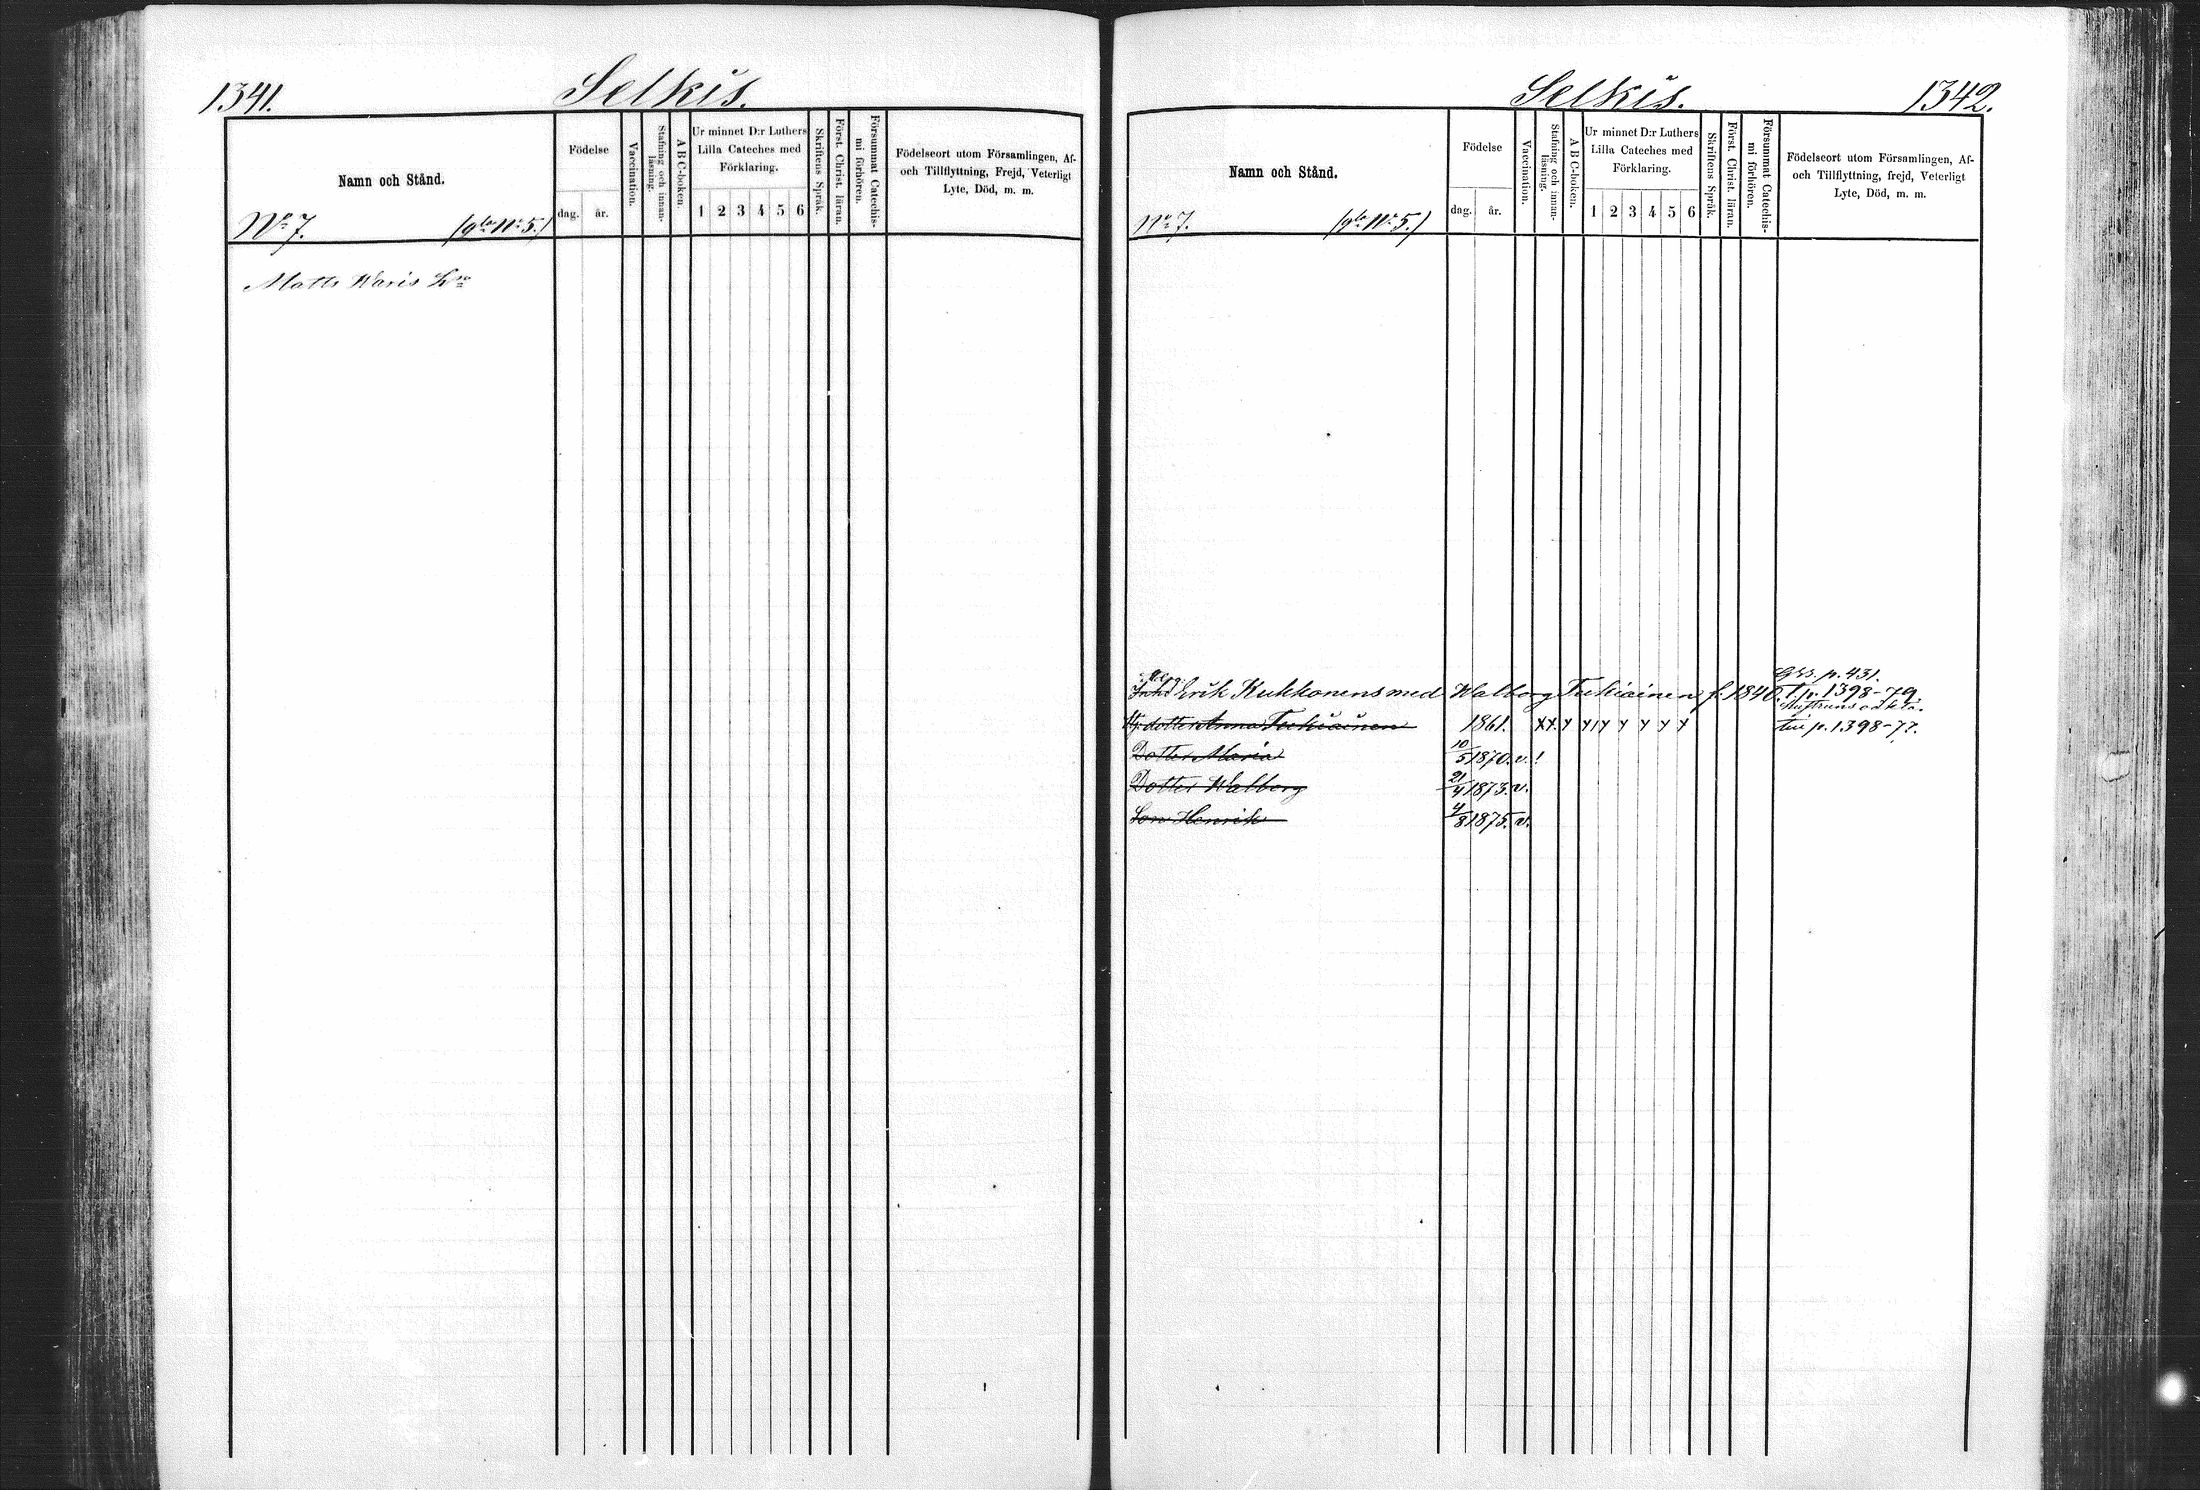 1341.
Selkis.
Namn och Stånd.
Födelse
dag. år.
Vaccination.
Stafning och innan-
läsning.
A B C-boken.
Ur minnet D:r Luthers
Lilla Cateches med
Förklaring.
1 2 3 4 5 6
Skriftens Språk.
Först. Christ. läran.
Försummat Catechis-
mi förhören.
Födelseort utom Församlingen, Af-
och Tillflyttning, Frejd, Veterligt
Lyte, Död, m. m.
No 7. (gla No 5.)
Matts Waris
Selkis.
1342.
Namn och Stånd.
Födelse
dag. år.
Vaccination.
Stafning och innan-
läsning.
A B C-boken.
Ur minnet D:r Luthers
Lilla Cateches med
Förklaring.
1 2 3 4 5 6
Skriftens Språk.
Först. Christ. läran.
Försummat Catechis-
mi förhören.
Födelseort utom Församlingen, Af-
och Tillflyttning, frejd, Veterligt
Lyte, Död, m. m.
No 7. (gla No 5.)
p. 431.
Erik Kukkonens med Walborg Teckiainen f. 1840. T. p. 1398-79.
dotter Anna Teckiainen 1861. p. 1398-77.
Dotter Maria 10/5 1870. v.
Dotter Walborg 21/4 1873. v.
Son Henrik 4/8 1875. v.